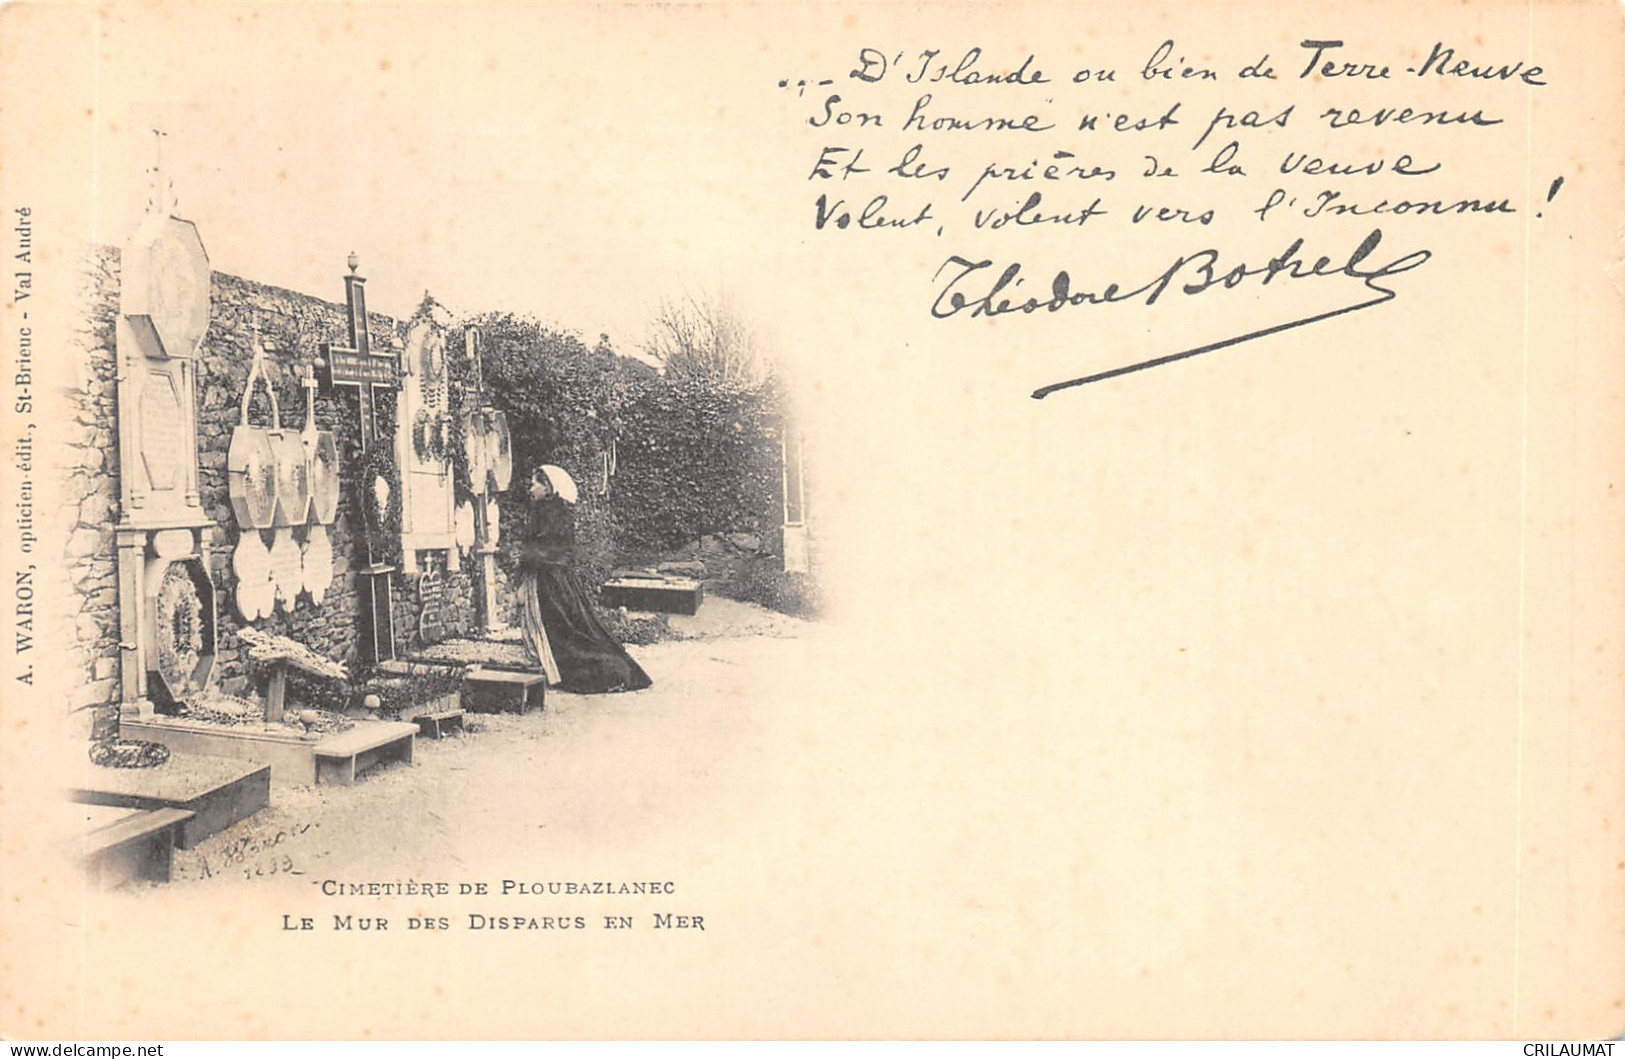 ... D'Islande ou bien de Terre-Neuve
Son homme n'est pas revenu
Et les prières de la veuve
Volent, volent vers l'Inconnu !
Théodore Botrel
A. WARON, opticien-édit., St-Brieuc - Val André
A. Waron.
1899
CIMETIÈRE DE PLOUBAZLANEC
LE MUR DES DISPARUS EN MER
delcampe.net
CRILAUMAT